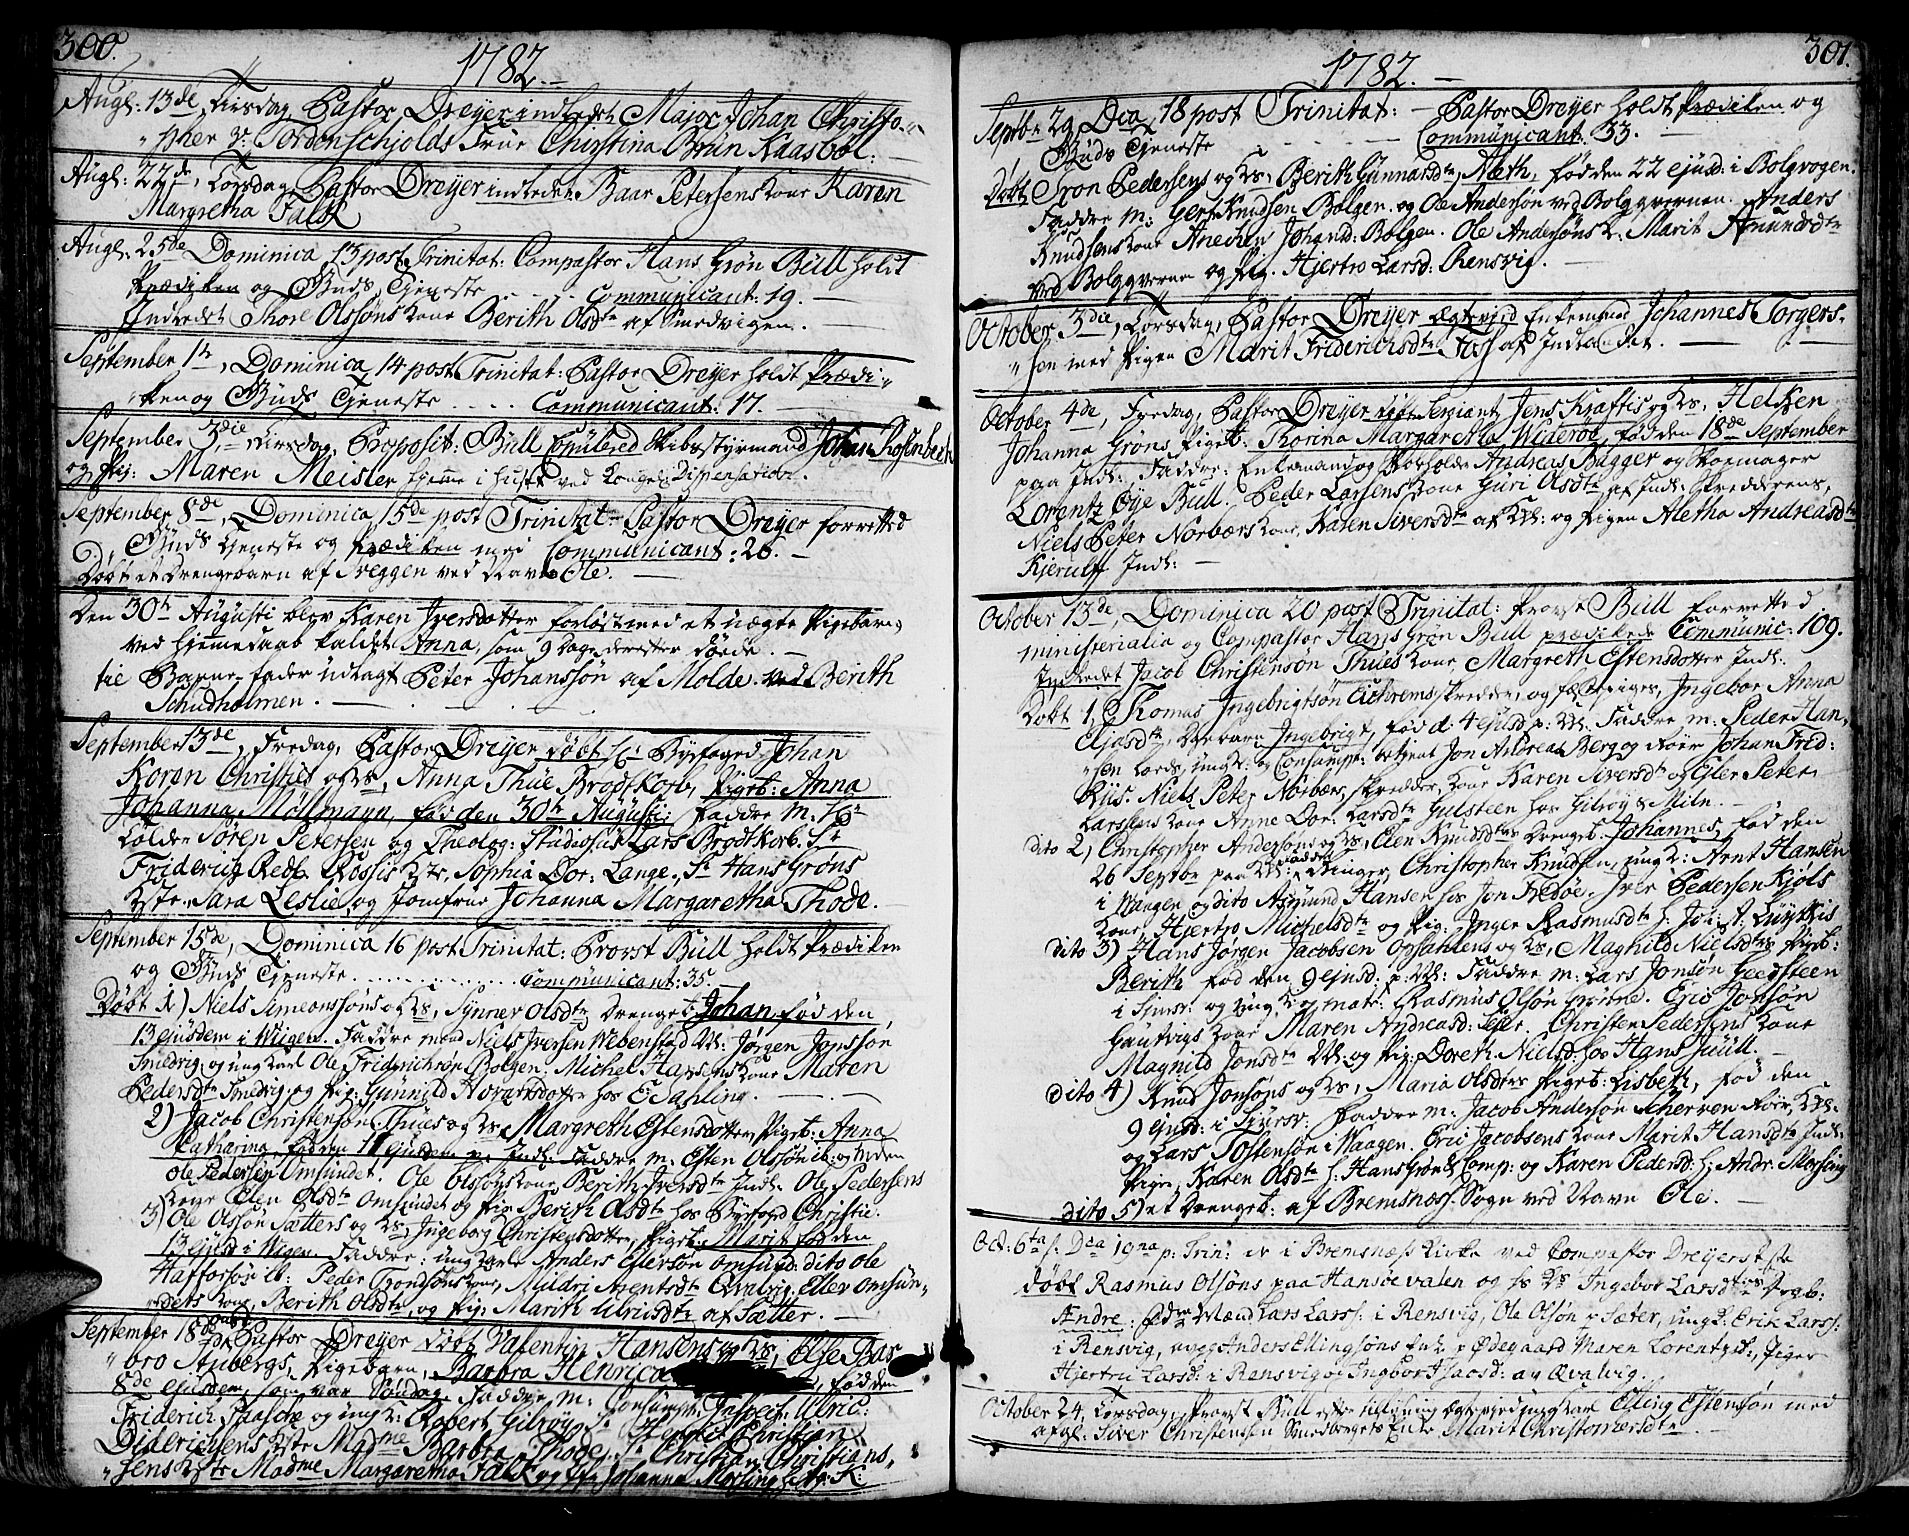 300.
1782.
Augl: 13de, Tirsdag, Pastor Dreyer indledet Major Johan Christo-
"pher v: Tordenschjolds Frue Christina Brun Kaasbøl:
Augl: 22de, Torsdag Pastor Dreyer indledet Baar Petersens Kone Karen
Margretha Falk
Augl: 25de Dominica 13 post Trinitat: Compastor Hans Grøn Bull holdt
Prædiken og Guds Tjeneste . . . . Communicant: 19.
Indledet Thore Olssøns Kone Berith Olsdtr af Smedvigen.
September 1te, Dominica 14 post Trinitat: Pastor Dreyer holdt Prædi"
"ken og Guds Tjeneste . . . . Communicant: 17.
September 3die, Tirsdag, Proposit: Bull Copulered Skibsstyrmand Johan Rosenbech
og Pig: Maren Meisler hjemme i Huset ved Kongel: Dispensation.
September 8de, Dominica 15de post Trinitat: Pastor Dreyer forretted
Guds Tjeneste og Prædiken med Communicant: 26.
Døbt et Drengebarn af Freggen ved Navn Ole.
Den 30te Augusti blev Karen Iversdotter forløst med et uægte Pigebarn,
ved hjemmedaab kaldet Anna, som 9 Dage derefter døde.
til Barne-fader udlagt Peter Johanssøn af Molde. ved Berith
Schudholmen.
September 13de, Fredag, Pastor Dreyer døbt Hr: Byefoged Johan
Koren Christies og Hs, Anna Thue Brodtkorb, Pigeb: Anna
Johanna Mollmann, fød den 30te Augusti: Faddre M: Hr
Tolder Søren Petersen og Theolog: Studiosus Lars Brodtkorb. Sr
Friderich Redb Rossis Kste, Sophia Dor: Lange., Sr Hans Grøns
Kste Sara Leslie, og Jomfrue Johanna Margaretha Thode.
September 15de, Dominica 16 post Trinitat: Provst Bull holdt Prædiken
og Guds Tjeneste . . . . . . Communicant: 35.
Døbt 1) Niels Simeonssøns og Hs, Synnev Olsdtr Drenget Johan, fød den
13 ejusdem i Wigen. Faddre mend Niels Iversen Webenstad Kl: Jørgen Jonssøn
Smedvig, og ung Karl Ole Friderichsøn Bolgen. Michel Hansens Kone Maren
Pedersdtr Smedvig, og Pig: Gunnild Havarsdotter hos E. Dahling.
2) Jacob Christensøn Thues og Hs, Margreth Estensdotter, Pigeb: Anna
Catharina, fød den 11 ejusdem p: Indl: Faddre M: Esten Olssøn ib: og
Ole Pedersen Omsundet. Ole Olssøns Kone Berith Iversdtr Indl: Ole Pedersens
Kone Elen Olsdtr Omsundet og Pig: Berith Olsdtr hos Byefoged Christie.
3) Ole Olssøn Sætters og Hs: Ingeborg Christensdotter, Pigeb: Marit fød den
13 ejusd: i Wigen. Faddre: ung Karle Anders Estensøn Omsund: dito Ole
Hafforsøn ib: Peder Trondsøns Kone, Mildri Arentsdtr Qvalvig, Eller Omsun-
"dets Kone, Berith Olsdtr, og Pig: Marith Ulrichsdtr af Sætter.
September 18de Pastor Dreyer døbt Valentin Hansens og Hs, Else Bar
"bro Stubergs, Pigebarn, Barbra Henrica, fød den
8de ejusdem, som var Søndag. Faddre M: Consumpt: Inspect: Ulric:
Friderich Paasche og ung K: Robert Gilroy Sr Henric Christian
Diderichsens Kste Madme Barbra Thode. Sr Christian Christians,
"sens Kste Madme Margaretha Falk og Jfr Johanna Morsing
301.
1782.
Septbr: 29, Dca, 18 post Trinitat: Pastor Dreyer holdt Prædiken og
Guds Tjeneste . . . . Communicant. 33.
Døbt Tron Pedersens og Hs: Berith Gunnarsdtr, Aleth, fød den 22 ejusd: i Bolgvogen.
Faddre M: Gert Knudsen Bolgen. og Ole Andersøn ved Bolgqvernen. Anders
Knudsens Kone Anechen Johansd: Bolgen. Ole Andersøns K: Marit Amundsdtr
ved Bolgqvernen og Pig: Hjertro Larsd: Rensvig.
October 3die, Torsdag, Pastor Dreyer Ægtevied Enkemand Johannes Torgers-
"sen med Pigen Marit Friderichsdtr Foss af Indlandet.
October 4de, Fredag, Pastor Dreyer døbt Sergiant Jens Krafts og Hs, Helchen
Johanna Grøns Pigeb: Thorina Margaretha Widerøe, fød den 18de September
paa Indl: Faddre: Enkemand og Avlholder Andreas Bugger og Skomager
Lorentz Øye Bull. Peder Larsens Kone Guri Olsdtr af Indl: Skredderens,
Niels Peter Norbers Kone, Karen Siversdtr af Kl: og Pigen Aletha Andreasdtr
Kjerulff Indl:
October 13de, Dominica 20 post Trinitat: Provst Bull forretted
ministerialia og Compastor Hans Grøn Bull prædikede Communic: 109.
Indledet Jacob Christensøn Thues Kone Margreth Estensdotter Indl:
Døbt 1, Thomas Ingebrigtsøn Eichrems, skredder, og fæstepiges, Ingebor Anna
Eljasdtr, Horebarn Ingebrigt, fød d: 4 ejusd p: Kl: Faddre M: Peder Han,
"sen Lords, ung K: og Consumpt: betjent Jon Andreas Berg og Roer Johan Frid:
Riis. Niels Peter Norbers, skredder, Kone Karen Siversdtr og Ejler Peter
Larssens Kone Anne Dor: Larsdtr Gulsteen hos Gilroy & Miln.
dito 2) Christopher Andersøns og Hs, Elen Knudsdtrs Drengeb: Johannes, fød den
26 Septbr paa Kl: Faddre Ringer, Christopher Knudsen, ung K: Arnt Hansen
i Waagen og dito Asmund Hansen hos Jon Fredøe. Iver Pedersen Kjøls
Kone, Hjertro Michelsdtr og Pig: Inger Rasmusdtr
dito 3) Hans Jørgen Jacobsen Opsahlens og Hs, Magnild Nielsdtrs Pigeb:
Berith fød den 9 ejusd: p: Kl: Faddre M: Lars Jonsøn Geedsteen
i Sjursv: og ung K: matr: Rasmus Olsøn Hjørne. Eric Jonsøn
Gautvigs Kone Maren Andreasd: Christen Pedersens Kone
Magnild Jonsdtr Kl: og Pig: Doreth: Nielsd: hos Hans Juull.
dito 4) Knud Jonsøns og Hs, Maria Olsdtrs Pigeb: Lisbeth, fød den
9 ejusd: i Sjursv: Faddre M: Jacob Andersøn Scherven Roer, Kl:
og Lars Tostensøn i Waagen. Eric Jacobsens Kone Marit Hansdtr Indl:
Pigen, Karen Olsdtr h: Hans Grøn & Comp: og Karen Pedersd: h: Andr: Morsing
dito 5) et Drengeb: af Bremsnæss Sogn ved Navn Ole.
Oct: 6ta Dca 19na p: Trin: er i Bremsnæss Kirke ved Compastor Dreyer
døbt Rasmus Olsøns paa Hansøevalen og hs Hs Ingebor Larsdtrs Drgb:
Andre: Fadre Mænd Lars Larss: i Rensvig, Ole Olsøn p Sæter, ung K: Erik Larss:
i Rensvig, Anders Ellingsøns Enke p Ødegaard Maren Lorentzdtr, Piger
Hjertru Larsd: i Rensvig og Ingbor Isacsd: av Qvalvig.
October 24, Torsdag, Provst Bull efter ung Karl Elling Estensøn med
afgl: Siver Christensen Smedvogets Enke Marit Christophersdtr.